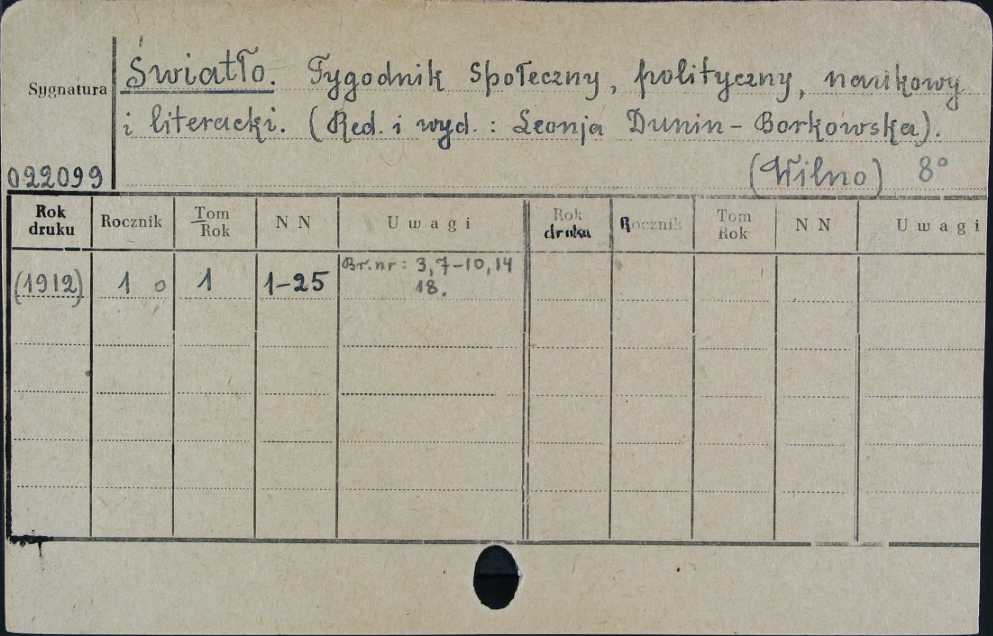 Światło. Tygodnik społeczny, polityczny, naukowy
Sygnatura
i literacki. (Red. i wyd.: Leonja Dunin-Borkowska).
022099
(Wilno) 8°
Rok druku Rocznik Tom Rok NN Uwagi Rok druku Rocznik Tom Rok NN Uwagi
(1912) 1 o 1 1-25 Br. nr: 3, 7-10, 14
18.